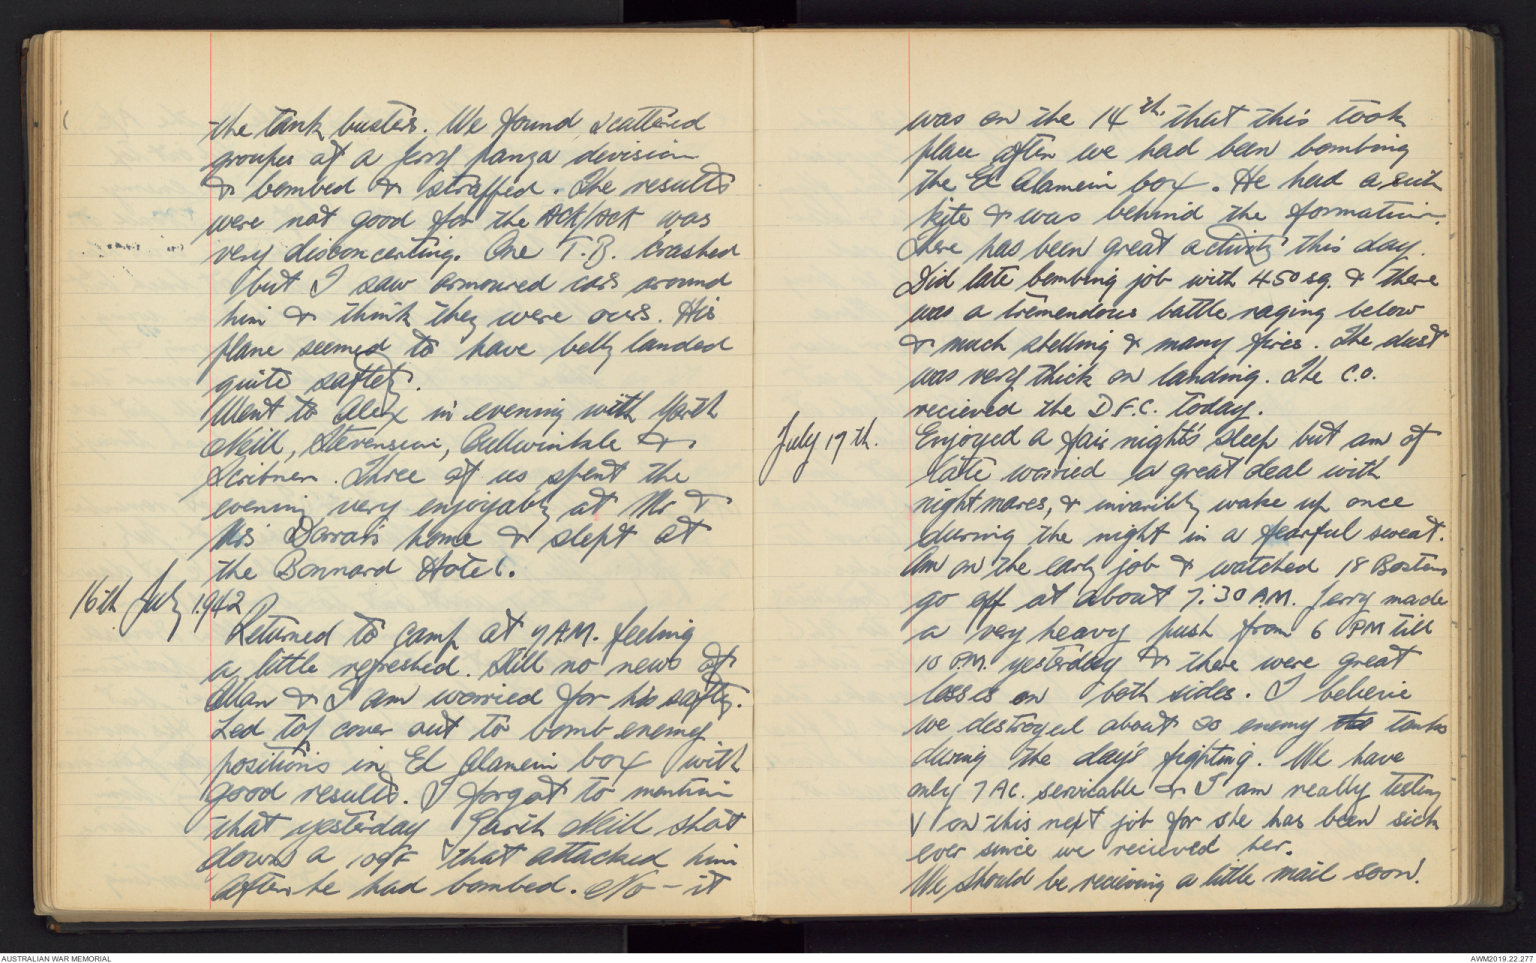 the tank busters. We found scattered
groups of a Jerry panza division
& bombed & straffed. The results
were not good for the ACK/ACK was
very disconcerting. One T.B. crashed
but I saw armoured cars around
him & think they were ours. His
plane seemed to have belly landed
quite saftely.
Went to Alex in evening with Garth
Neill, Stevenson, Bullwinkle &
Scribner. Three of us spent the
evening very enjoyably at Mr &
Mrs Darrat's home & slept at
the Bonnard Hotel.
16th July 1942
Returned to camp at 7 A.M. feeling
a little refreshed. Still no news of
Alan & I am worried for his safty.
Led top cover out to bomb enemy
positions in El Alamein box with
good results. I forgot to mention
that yesterday Garth Neill shot
down a 109F that attacked him
after he had bombed. No - it
was on the 14th that this took
place after we had been bombing
the El Alamein box. He had a sick
kite & was behind the formation.
There has been great activity this day.
Did late bombing job with 450 sq. & there
was a tremendous battle raging below
& much shelling & many fires. The dust
was very thick on landing. The C.O.
recieved the D.F.C. today.
July 17th.
Enjoyed a fair night's sleep but am of
late worried a great deal with
nightmares, & invaribly wake up once
during the night in a fearful sweat.
Am on the early job & watched 18 Bostons
go off at about 7:30 A.M. Jerry made
a very heavy push from 6 PM till
10 P.M. yesterday & there were great
losses on both sides. I believe
we destroyed about 20 enemy tanks
during the day's fighting. We have
only 7 AC. servicable & I am really testing
V on this next job for she has been sick
ever since we recieved her.
We should be recieving a little mail soon.
AUSTRALIAN WAR MEMORIAL
AWM2019.22.277